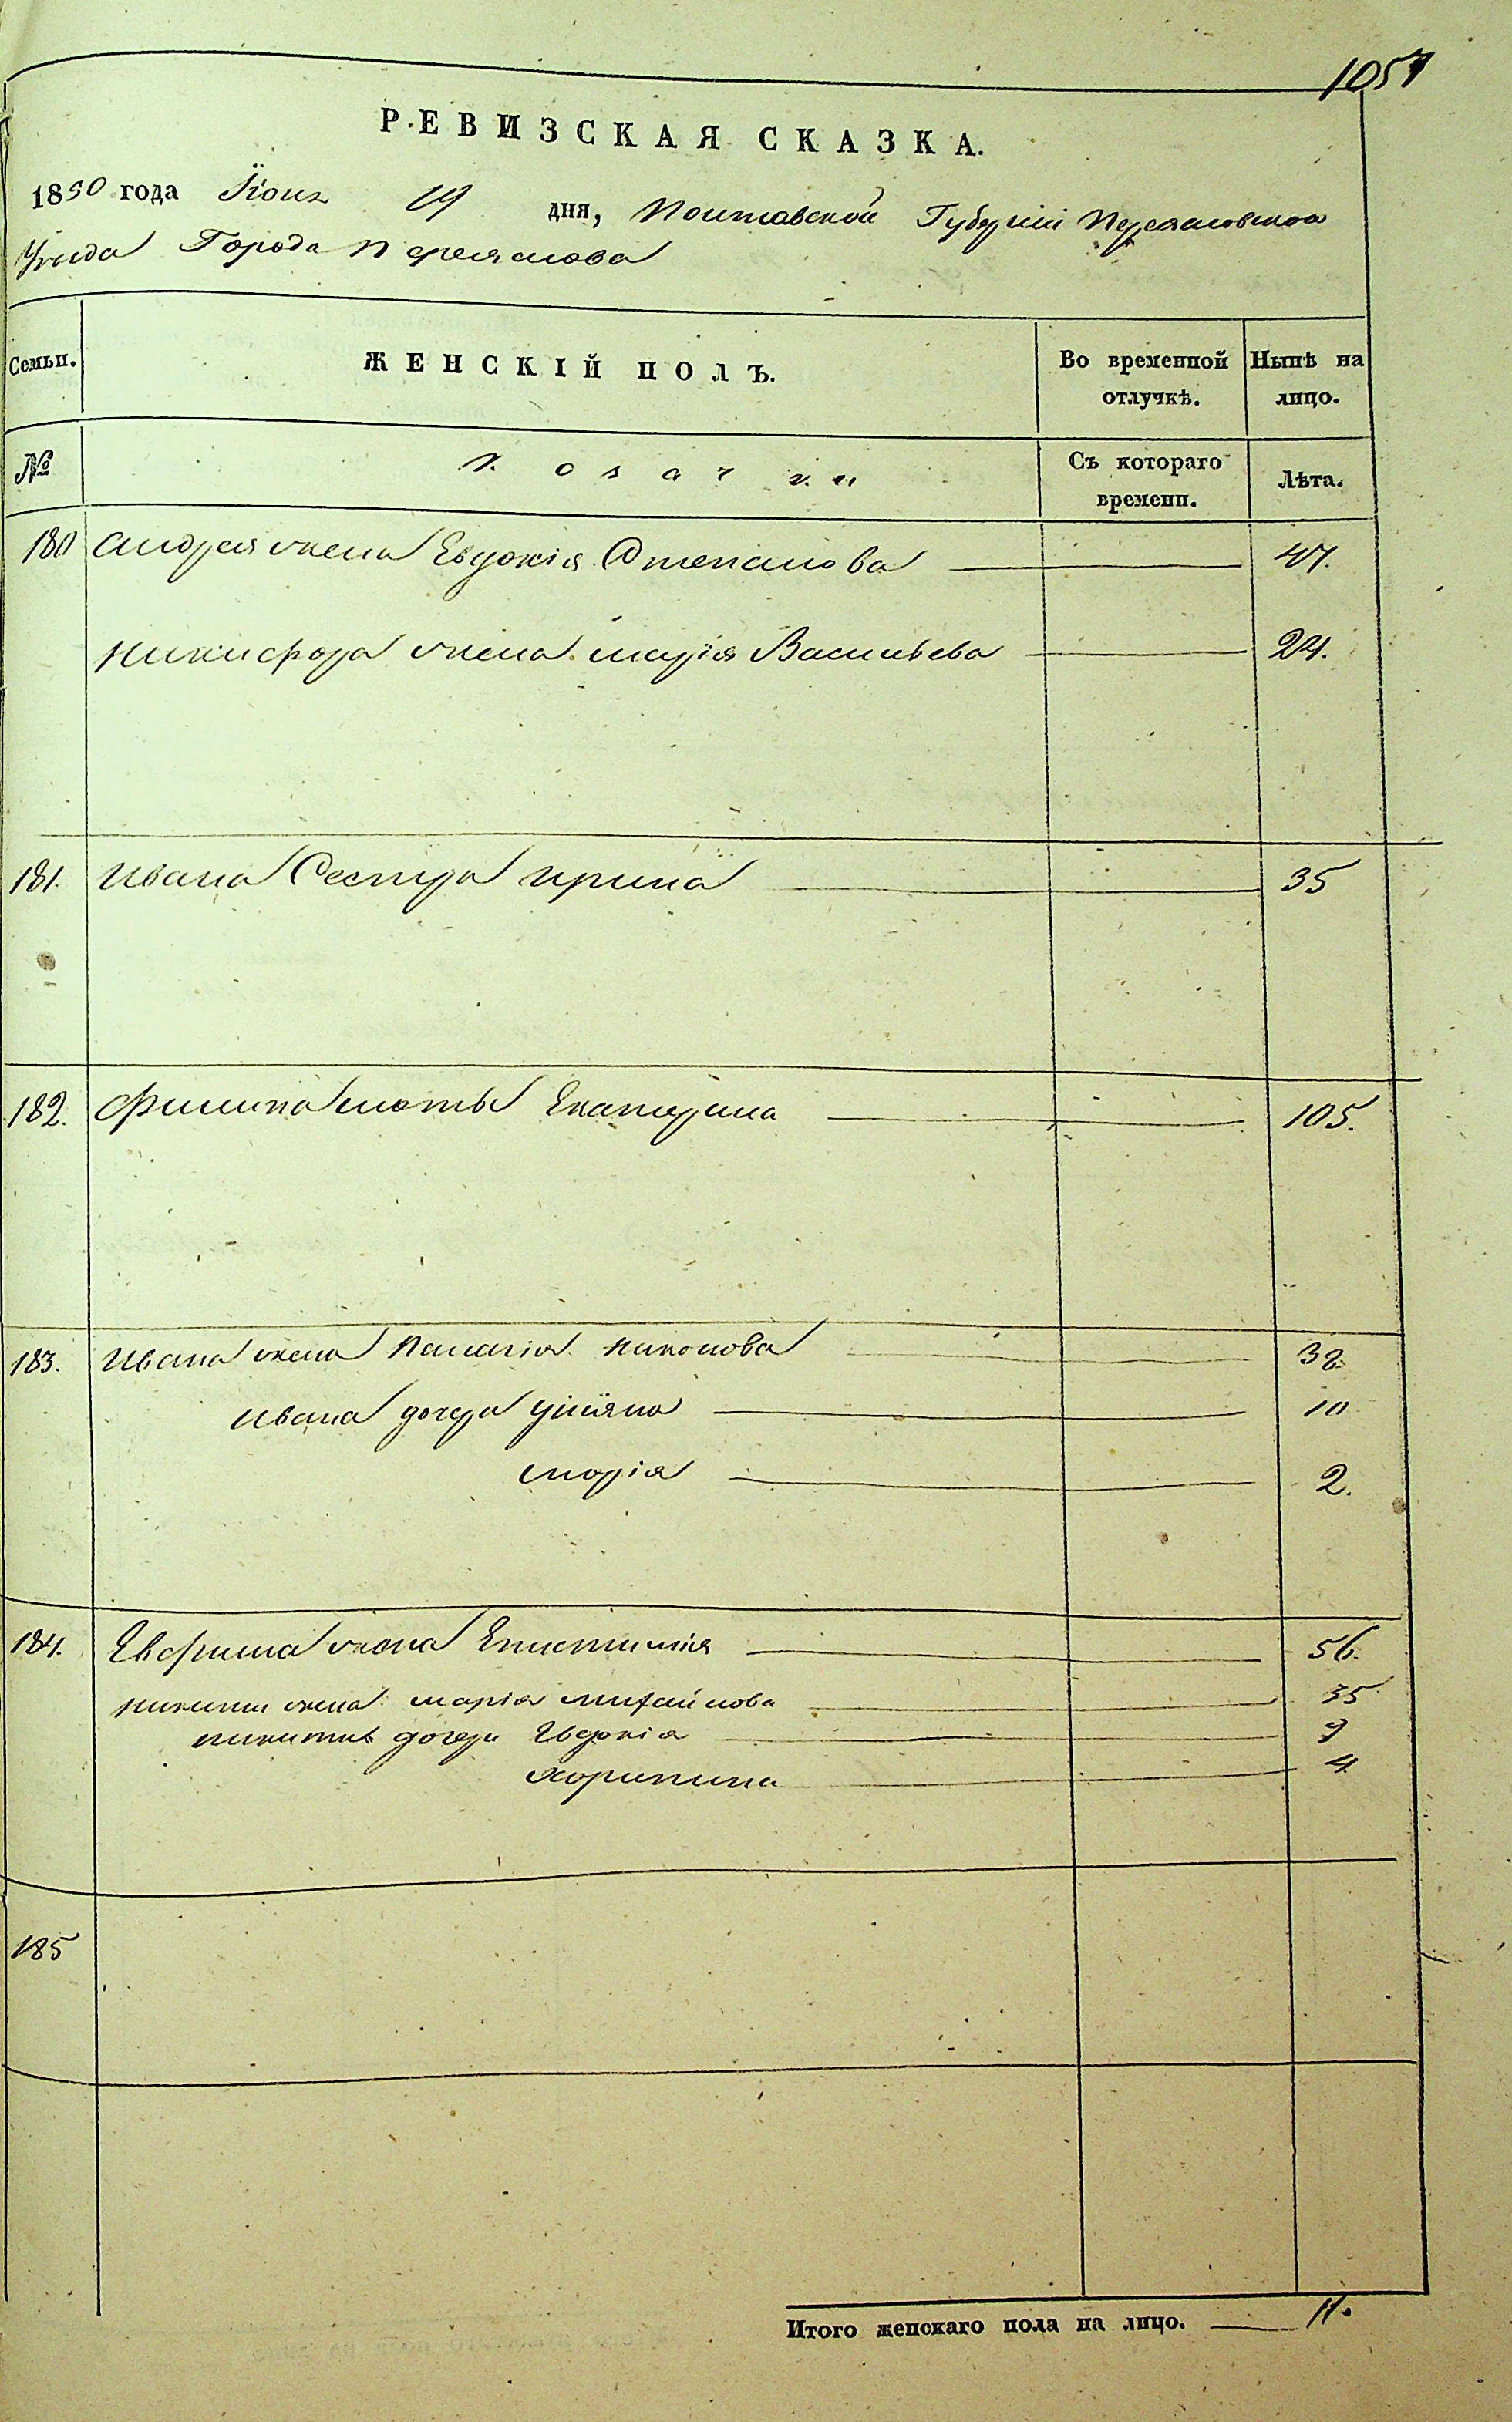 1057
РЕВИЗСКАЯ СКАЗКА.
1850 года Іюня 19 дня, Полтавской Губерніи Переяславского
Уезда Города Переяслова
Семьи. ЖЕНСКІЙ ПОЛЪ. Во временной отлучкѣ. Нынѣ на лицо.
№ Козачки Съ котораго времени. Лѣта.
180 Андрея жена Евдокія Степанова 47.
Никифора жена Марія Васильева 24.
181. Ивана Сестра Ирина 35
182. Филипа мать Екатерина 105.
183. Ивана жена Палагія Никонова 38.
Ивана дочери Уліяна 10
Марія 2.
184. Евфима жена Епистимія 56.
Никиты жена Марія Михайлова 35
Никиты дочери Евдокія 9
Харитина 4.
185
Итого женскаго пола на лицо. 11.